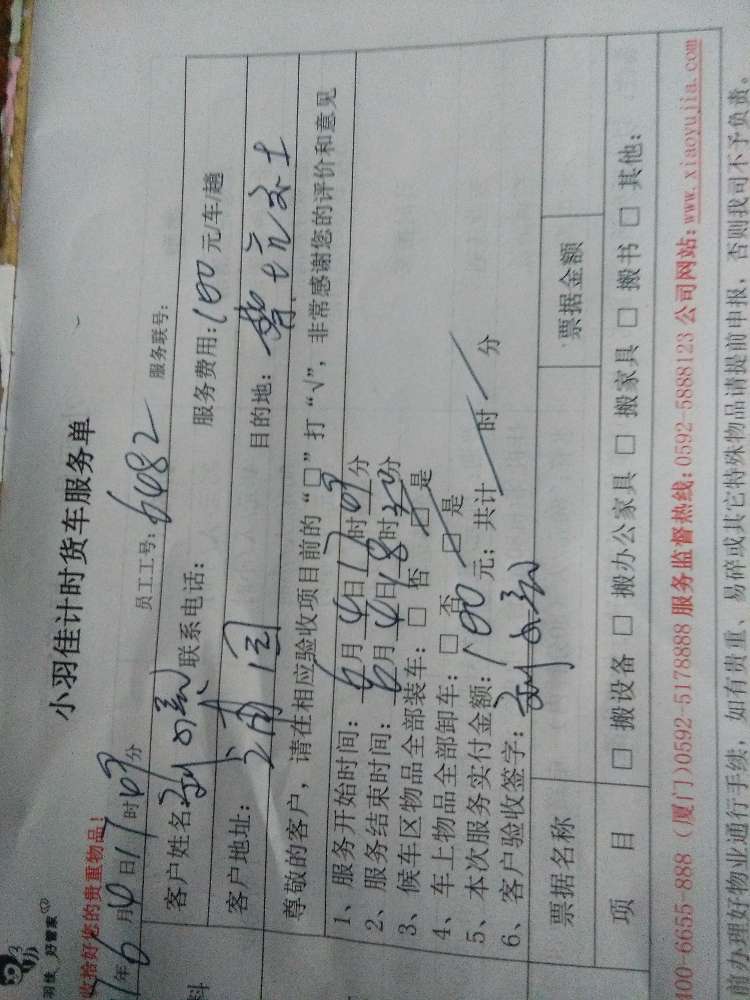 小羽佳计时货车服务单
羽佳 好管家
收拾好您的贵重物品!
年6月4日17时07分 员工工号: 6482 服务联号:
客户姓名: 联系电话: 服务费用:100元/车/趟
客户地址: 目的地:
尊敬的客户,请在相应验收项目前的“□”打“√”,非常感谢您的评价和意见
1、服务开始时间:6月4日17时07分
2、服务结束时间:6月4日18时分
3、候车区物品全部装车:□否 □是
4、车上物品全部卸车:□否 □是
5、本次服务实付金额:100元;共计 时 分
6、客户验收签字:
票据名称 票据金额
项 目 □搬设备 □搬办公家具 □搬家具 □搬书 □其他:
400-6655-888(厦门)0592-5178888 服务监督热线:0592-5888123 公司网站:www.xiaoyujia.com
前办理好物业通行手续,如有贵重、易碎或其它特殊物品请提前申报,否则我司不予负责。